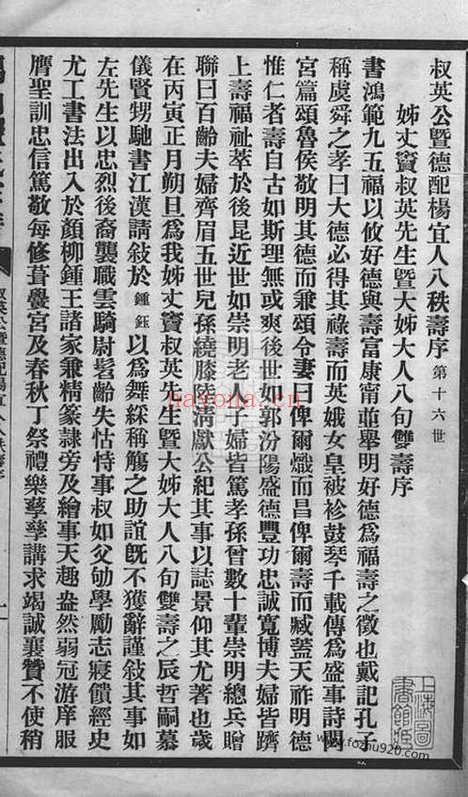 叔英公暨德配楊宜人八秩壽序 第十六世
姊丈竇叔英先生暨大姊大人八旬雙壽序
書鴻範九五福以攸好德與壽富康甯竝舉明好德爲福壽之徵也戴記孔子
稱虞舜之孝曰大德必得其祿壽而英娥女皇被袗鼓琴千載傳爲盛事詩閟
宮篇頌魯侯敬明其德而兼頌令妻曰俾爾熾而昌俾爾壽而臧蓋天祚明德
惟仁者壽自古如斯理無或爽後世如郭汾陽盛德豐功忠誠寬博夫婦皆躋
上壽福祉萃於後昆近世如崇明老人子婦皆篤孝孫曾數十輩崇明總兵贈
聯曰百齡夫婦齊眉五世兒孫繞膝陸清獻公紀其事以誌景仰其尤著也歲
在丙寅正月朔旦爲我姊丈竇叔英先生暨大姊大人八旬雙壽之辰哲嗣慕
儀賢甥馳書江漢請敍於 鍾鈺 以爲舞綵稱觴之助誼旣不獲辭謹敍其事如
左先生以忠烈後裔襲職雲騎尉髫齡失怙恃事叔如父劬學勵志寢饋經史
尤工書法出入於顏柳鍾王諸家兼精篆隸旁及繪事天趣盎然弱冠游庠服
膺聖訓忠信篤敬每修葺黌宮及春秋丁祭禮樂孳孳講求竭誠襄贊不使稍
叔英公暨德配楊宜人八秩壽序
一
上海圖書館藏
hayona.cn
www.fozhu920.com